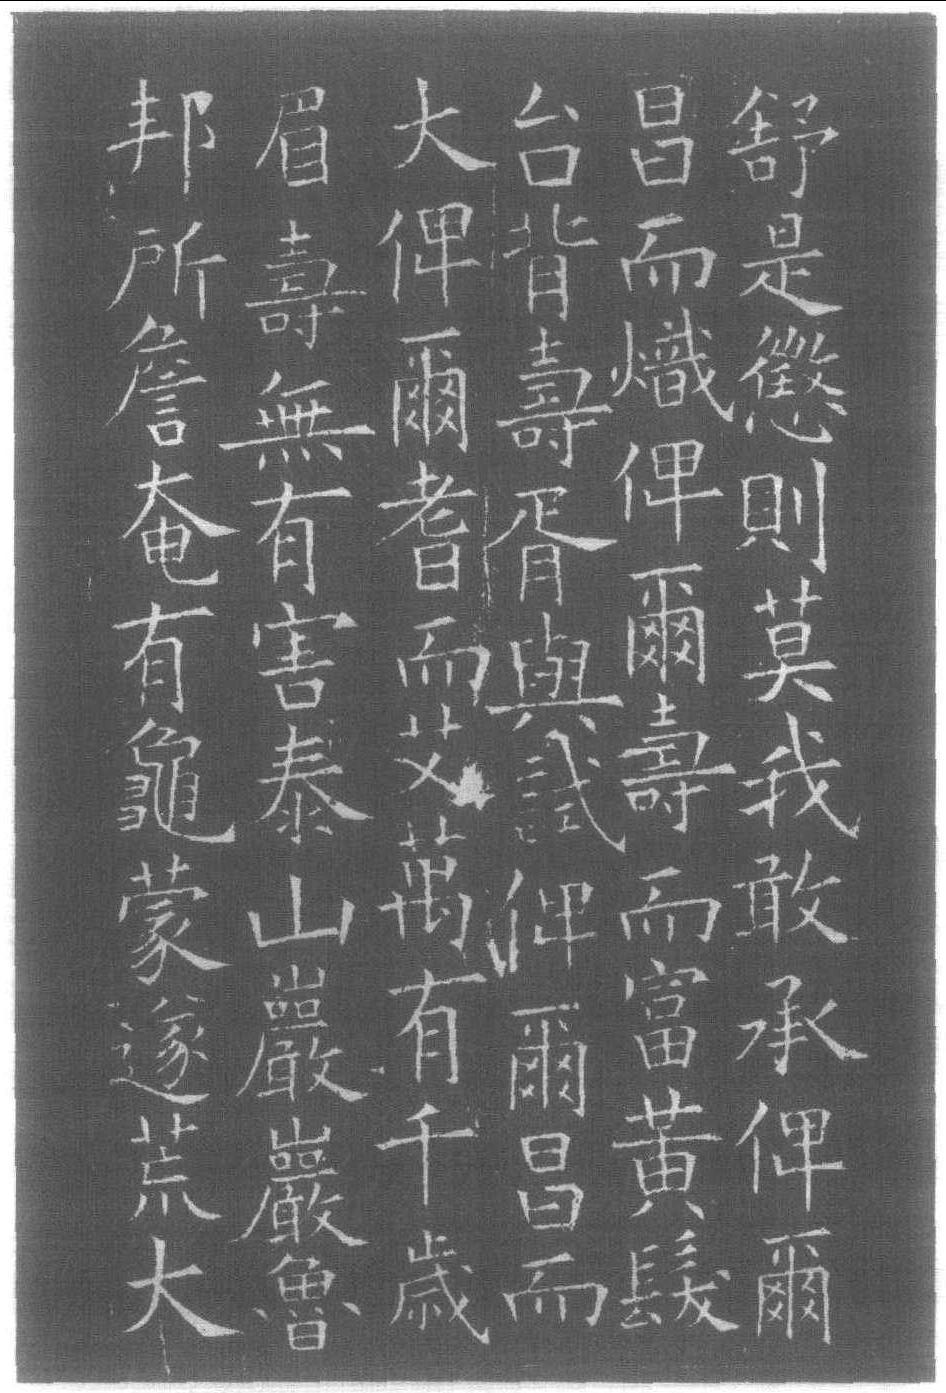 舒是懲則莫我敢承俾爾
昌而熾俾爾壽而富黃髮
台背壽胥與試俾爾昌而
大俾爾耆而艾萬有千歲
眉壽無有害泰山巖巖魯
邦所詹奄有龜蒙遂荒大